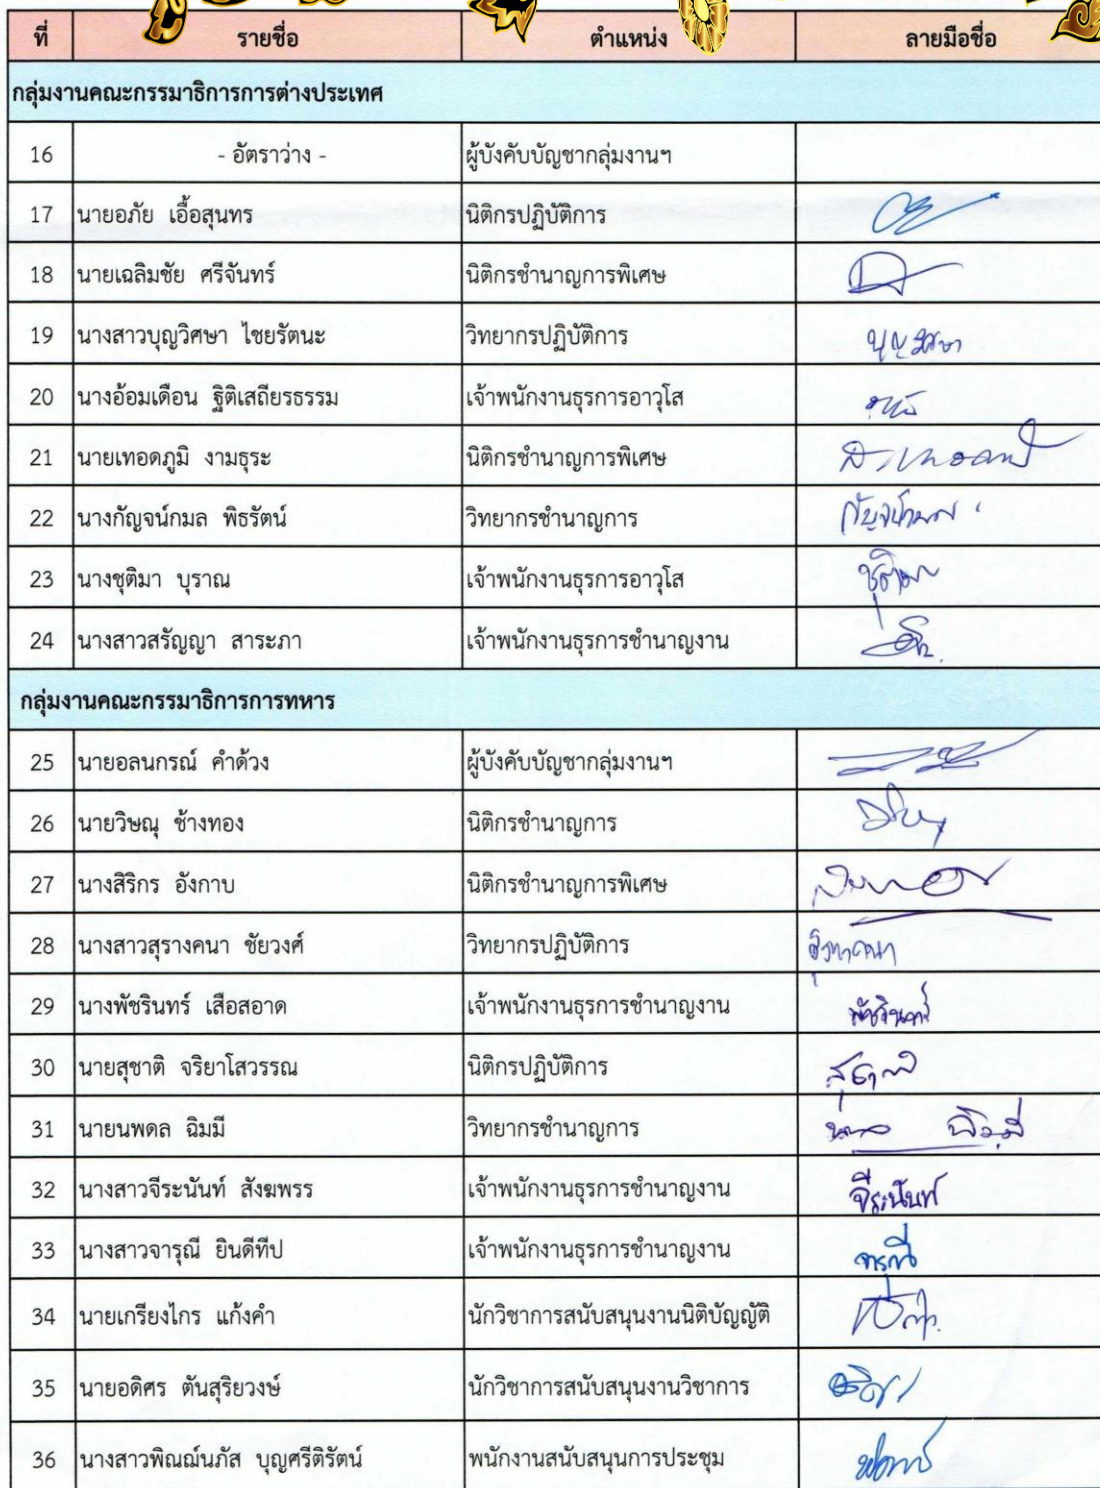 ที่ รายชื่อ ตำแหน่ง ลายมือชื่อ
กลุ่มงานคณะกรรมาธิการการต่างประเทศ
16 - อัตราว่าง - ผู้บังคับบัญชากลุ่มงานฯ
17 นายอภัย เอื้อสุนทร นิติกรปฏิบัติการ
18 นายเฉลิมชัย ศรีจันทร์ นิติกรชำนาญการพิเศษ
19 นางสาวบุญวิศษา ไชยรัตนะ วิทยากรปฏิบัติการ บุญวิศษา
20 นางอ้อมเดือน ฐิติเสถียรธรรม เจ้าพนักงานธุรการอาวุโส
21 นายเทอดภูมิ งามธุระ นิติกรชำนาญการพิเศษ
22 นางกัญจน์กมล พิธรัตน์ วิทยากรชำนาญการ กัญจน์กมล
23 นางชุติมา บุราณ เจ้าพนักงานธุรการอาวุโส ชุติมา
24 นางสาวสรัญญา สาระภา เจ้าพนักงานธุรการชำนาญงาน
กลุ่มงานคณะกรรมาธิการการทหาร
25 นายอลนกรณ์ คำด้วง ผู้บังคับบัญชากลุ่มงานฯ
26 นายวิษณุ ช้างทอง นิติกรชำนาญการ
27 นางสิริกร อังกาบ นิติกรชำนาญการพิเศษ
28 นางสาวสุรางคนา ชัยวงศ์ วิทยากรปฏิบัติการ สุรางคนา
29 นางพัชรินทร์ เสือสอาด เจ้าพนักงานธุรการชำนาญงาน พัชรินทร์
30 นายสุชาติ จริยาโสวรรณ นิติกรปฏิบัติการ สุชาติ
31 นายนพดล ฉิมมี วิทยากรชำนาญการ
32 นางสาวจีระนันท์ สังฆพรร เจ้าพนักงานธุรการชำนาญงาน จีระนันท์
33 นางสาวจารุณี ยินดีทีป เจ้าพนักงานธุรการชำนาญงาน จารุณี
34 นายเกรียงไกร แก้งคำ นักวิชาการสนับสนุนงานนิติบัญญัติ
35 นายอดิศร ตันสุริยวงษ์ นักวิชาการสนับสนุนงานวิชาการ
36 นางสาวพิณณ์นภัส บุญศรีติรัตน์ พนักงานสนับสนุนการประชุม